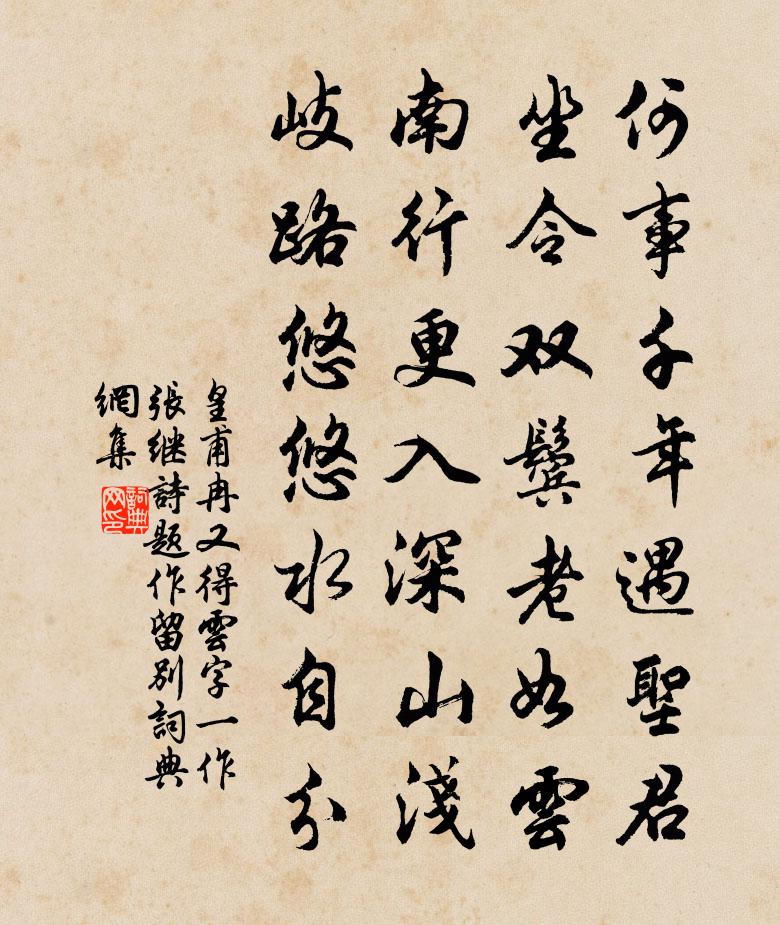 何事千年遇聖君
坐令双鬓老如雲
南行更入深山淺
岐路悠悠水自分
皇甫冉又得雲字一作
張继詩題作留別詞典
網集
詞典网印